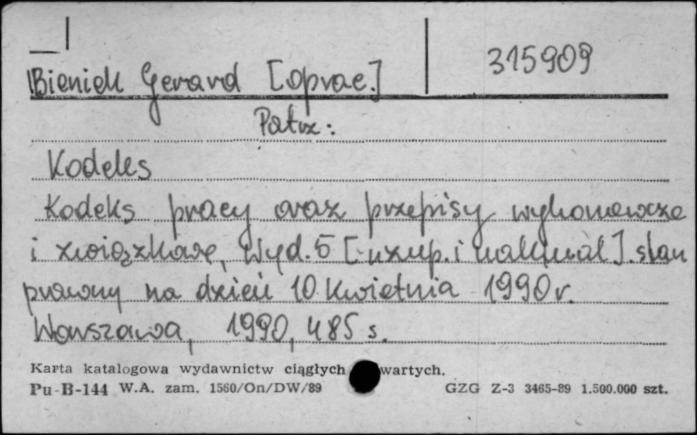 315909
Bieniek Gerard [oprac.]
Patrz:
Kodeks
Kodeks pracy oraz przepisy wykonawcze
i związkowe, Wyd. 5 [uzup. i uaktual]. stan
prawny na dzień 10 kwietnia 1990 r.
Warszawa, 1990, 485 s.
Karta katalogowa wydawnictw ciągłych wartych.
Pu-B-144 W.A. zam. 1560/On/DW/89 GZG Z-3 3465-89 1.500.000 szt.